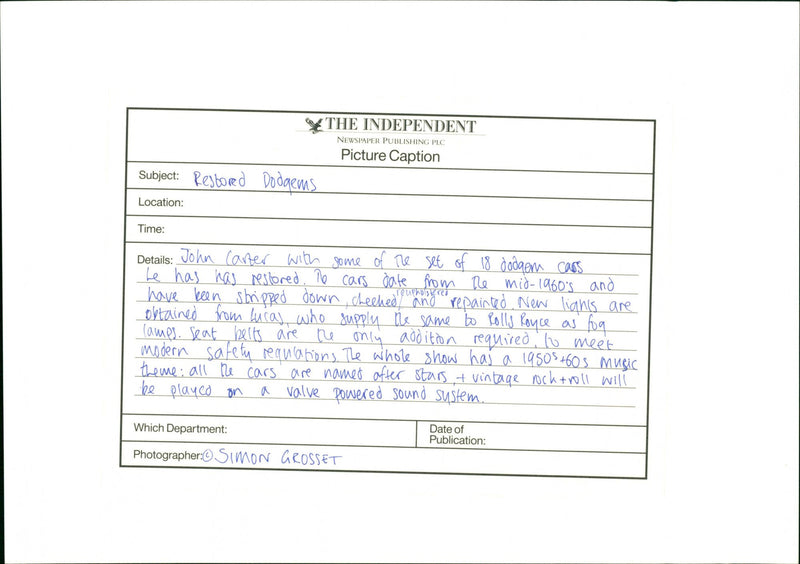 THE INDEPENDENT
NEWSPAPER PUBLISHING PLC
Picture Caption
Subject: Restored Dodgems
Location:
Time:
Details: John Carter with some of the set of 18 dodgem cars
he has has restored. The cars date from the mid-1960's and
have been stripped down, checked, reupholstered and repainted. New lights are
obtained from Lucas, who supply the same to Rolls Royce as fog
lamps. Seat belts are the only addition required, to meet
modern safety regulations. The whole show has a 1950s+60s music
theme: all the cars are named after stars, + vintage rock+roll will
be played on a valve powered sound system.
Which Department:
Date of
Publication:
Photographer: © SIMON GROSSET